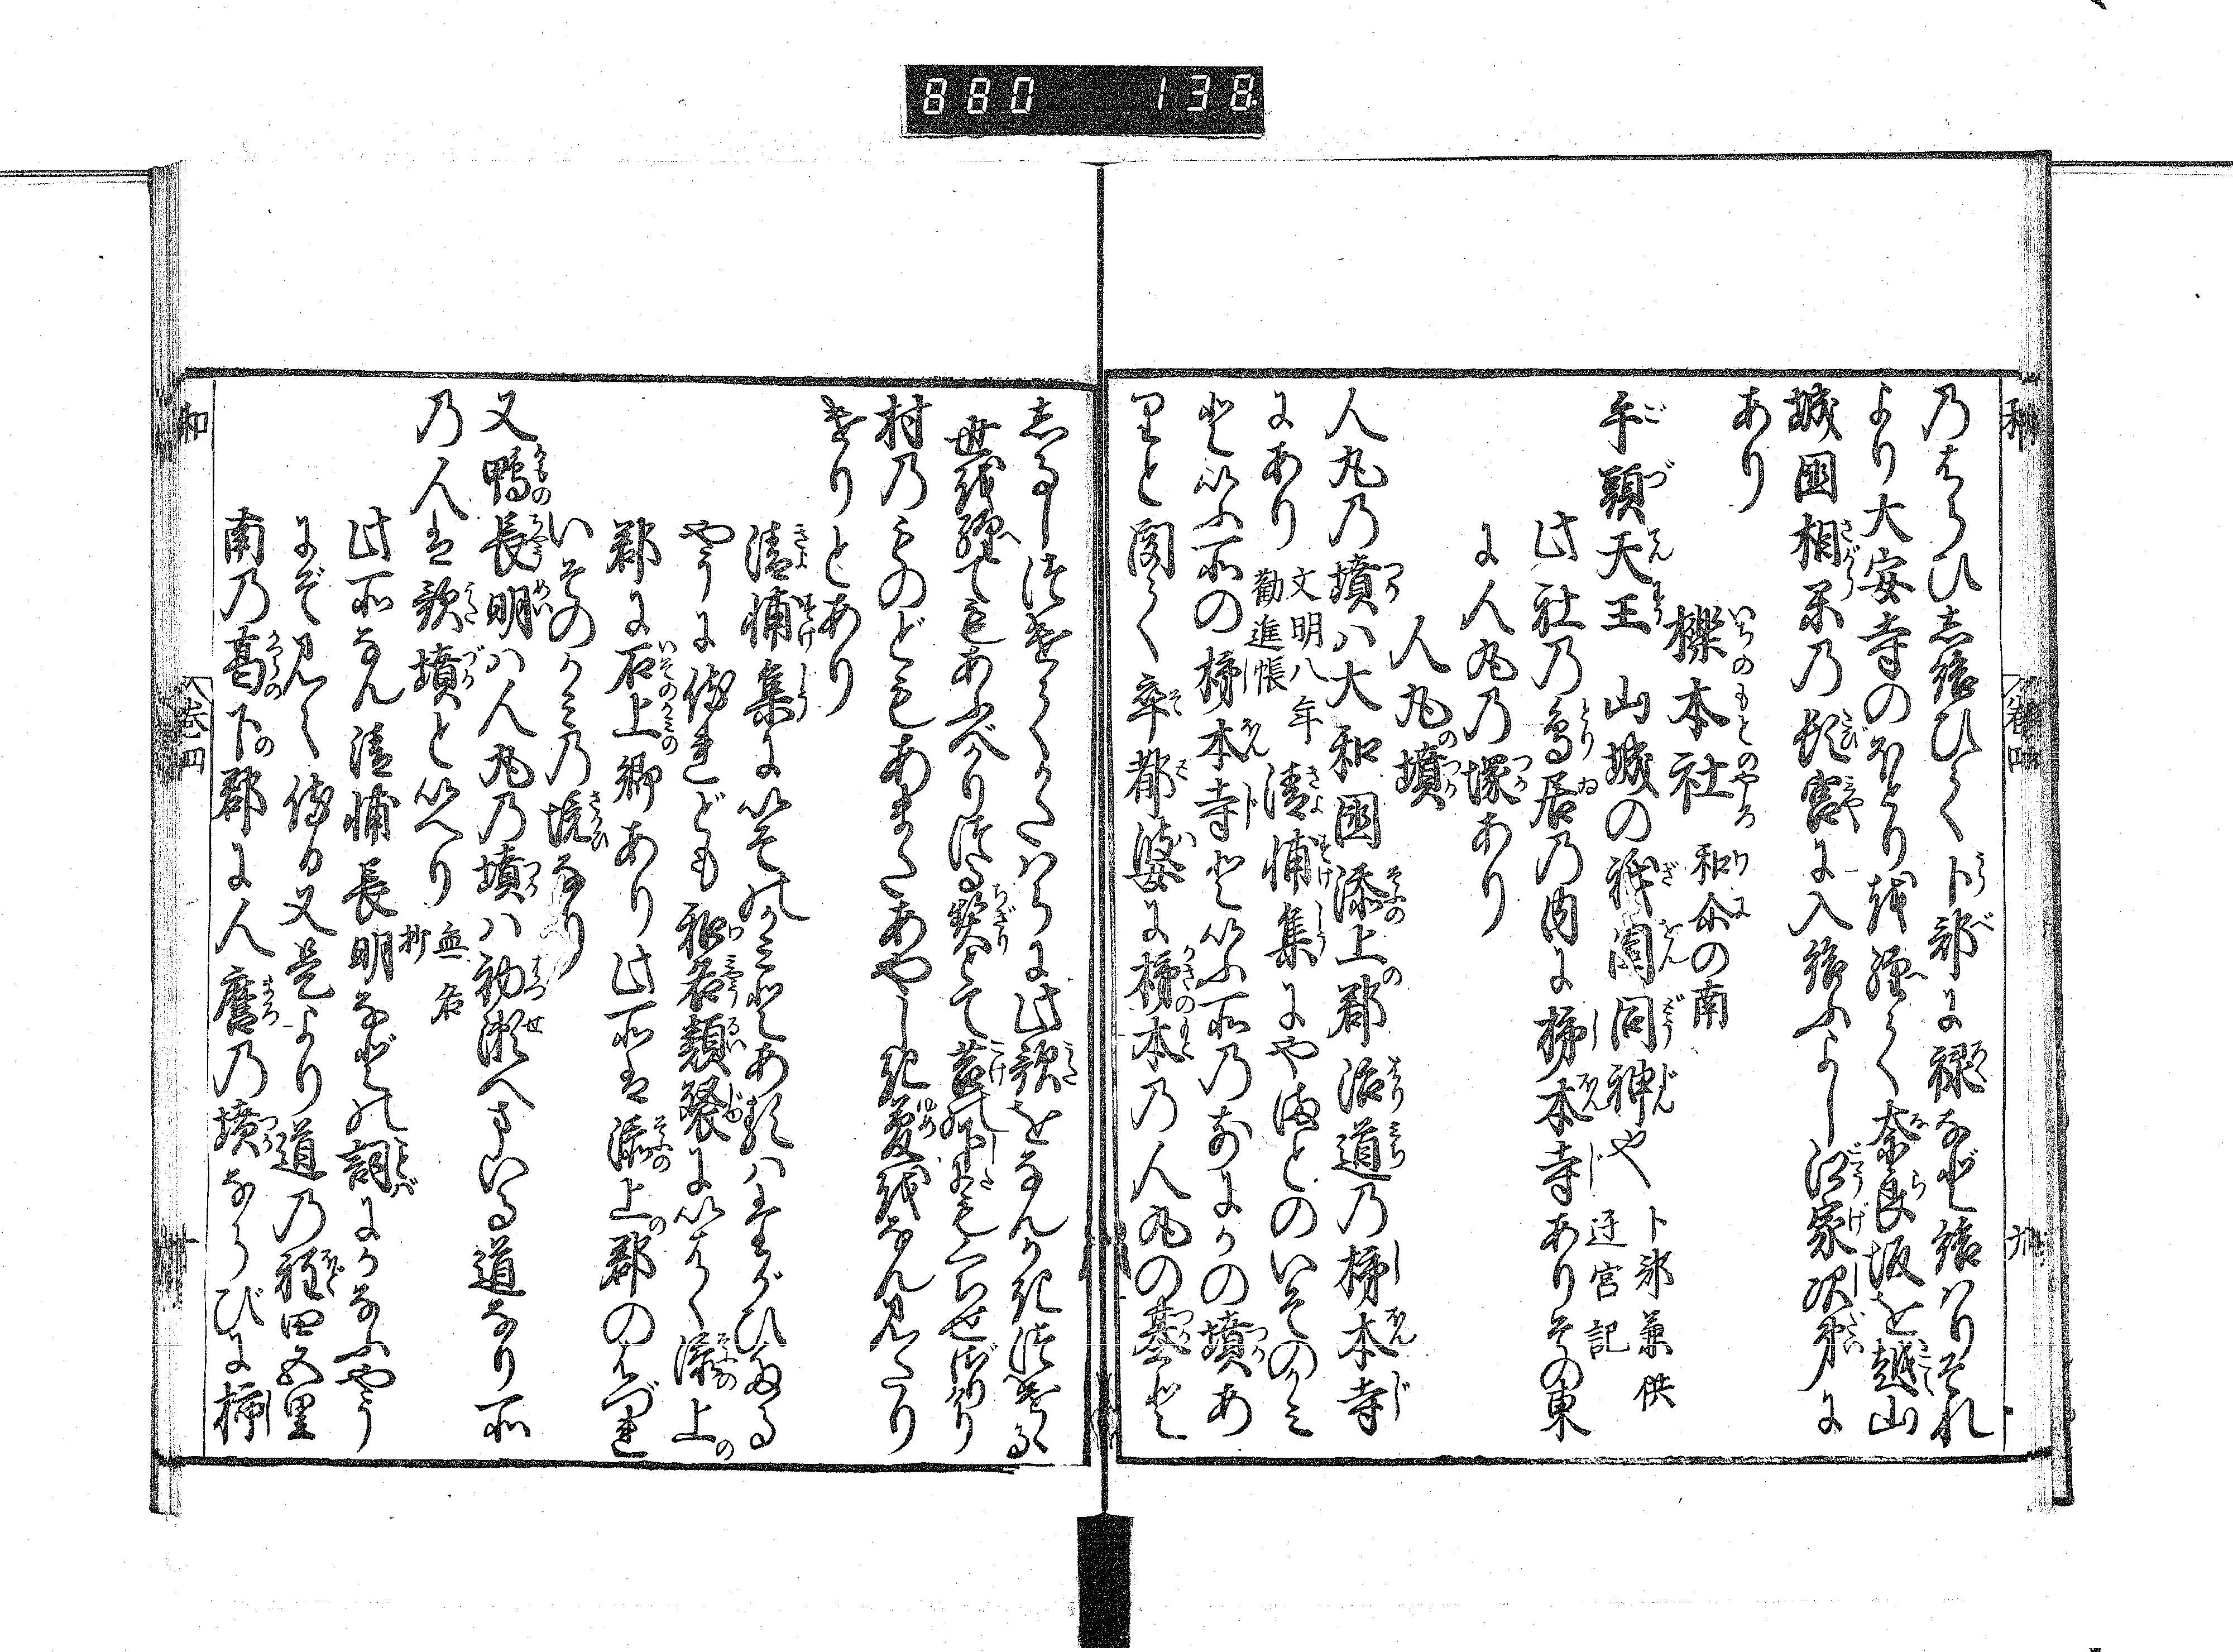 880 138
乃はらひし給ひて卜部に禄など給はりそれ
より大安寺のほとりを経て奈良坂を越山
城国相楽乃頓宮に入給ふよし江家次第に
あり
櫟本社 和尒の南
牛頭天王 山城の祇園同神也 卜部兼倶
迂宮記
此社乃鳥居乃内に柿本寺ありその東
に人丸乃塚あり
人丸墳
人丸乃墳ハ大和国添上郡治道乃柿本寺
にあり 文明八年
勧進帳 清輔集にやまとのいそのかみ
といふ所の柿本寺といふ所乃まへに人丸の墳あ
りと聞て卒都婆に柿本乃人丸の墓と
しるしつけてかたハらに此歌をなんかきつけゝる
世を経てもあふべかりける契こそ苔の下にも朽せざりけれ
村乃ものどもあまたあやしき夢をなん見たり
けりとあり
清輔集にいそのかみとあるハまがひぬる
やうに侍れども和名類聚に以はく添上
郡に石上郷あり此所は添上郡のはづれ
いそのかみ乃境なり
又鴨長明ハ人丸乃墳ハ初瀬へまいる道なり所
乃人は歌墳と以へり 無名
抄
此所なん清輔長明などの詞にかなふやう
にぞ見え侍る又是より道乃程四五里
南乃葛下郡に人麿乃墳ならびに柿
和 巻四